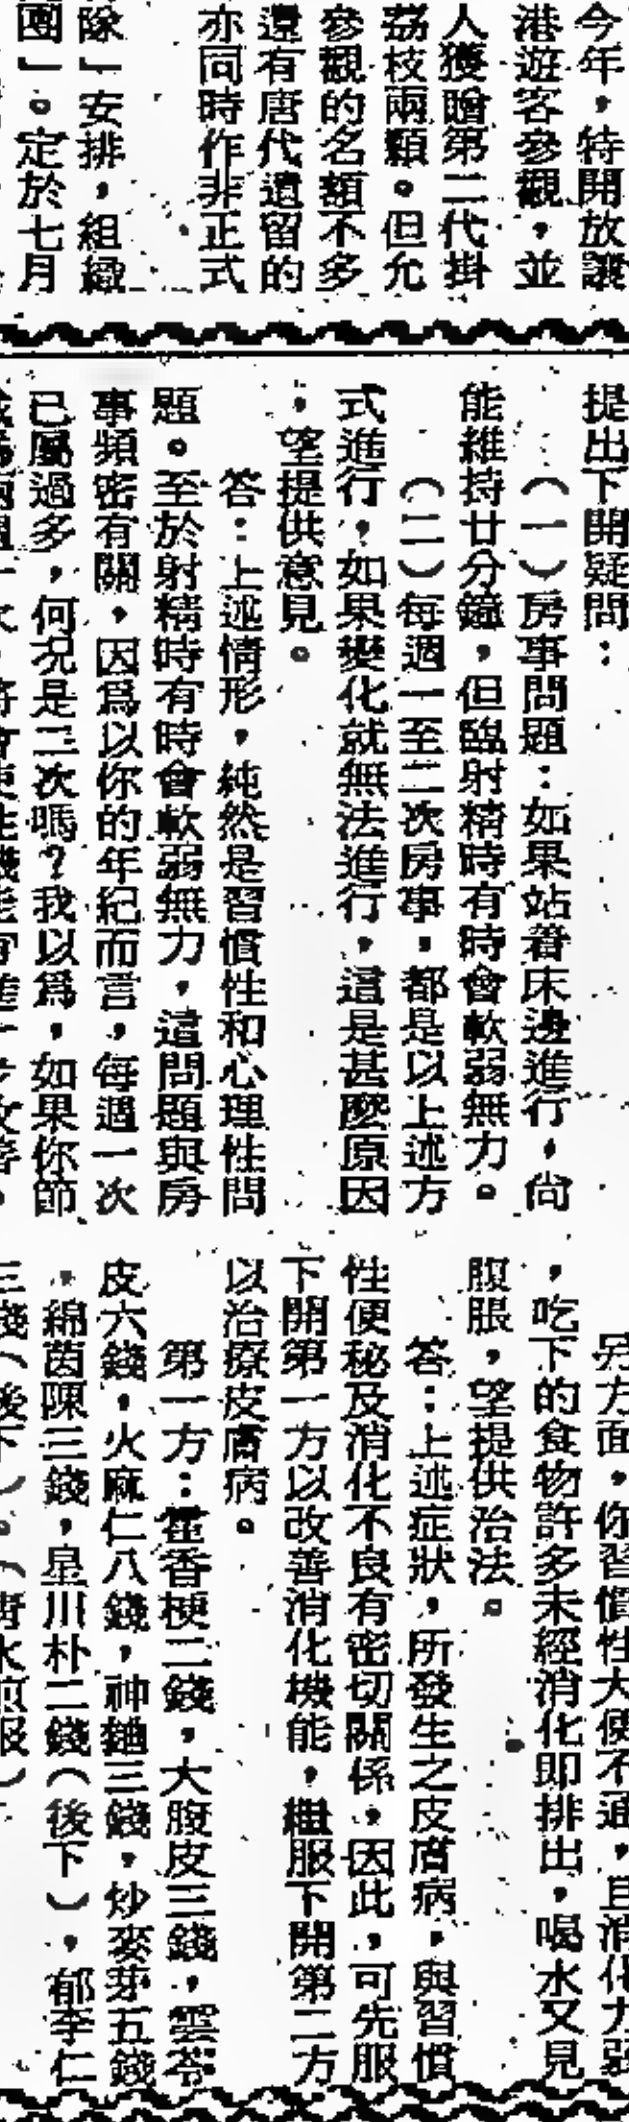 今年，特開放讓
港遊客參觀，並
人獲贈第二代掛
荔枝兩顆。但允
參觀的名額不多
還有唐代遺留的
亦同時作非正式
隊」安排，組織
團」。定於七月
提出下開疑問：
（一）房事問題：如果站着床邊進行，尚
能維持廿分鐘，但臨射精時有時會軟弱無力。
（二）每週一至二次房事，都是以上述方
式進行，如果變化就無法進行，這是甚麼原因
，望提供意見。
答：上述情形，純然是習慣性和心理性問
題。至於射精時有時會軟弱無力，這問題與房
事頻密有關，因爲以你的年紀而言，每週一次
已屬過多，何況是二次嗎？我以爲，如果你節
另方面，你習慣性大便不通，且消化力弱
，吃下的食物許多未經消化即排出，喝水又見
腹脹，望提供治法。
答：上述症狀，所發生之皮膚病，與習慣
性便秘及消化不良有密切關係，因此，可先服
下開第一方以改善消化機能，繼服下開第二方
以治療皮膚病。
第一方：藿香梗二錢，大腹皮三錢，雲苓
皮六錢，火麻仁八錢，神麯三錢，炒麥芽五錢
，綿茵陳三錢，星川朴二錢（後下），郁李仁
三錢（後下）。（清水煎服）